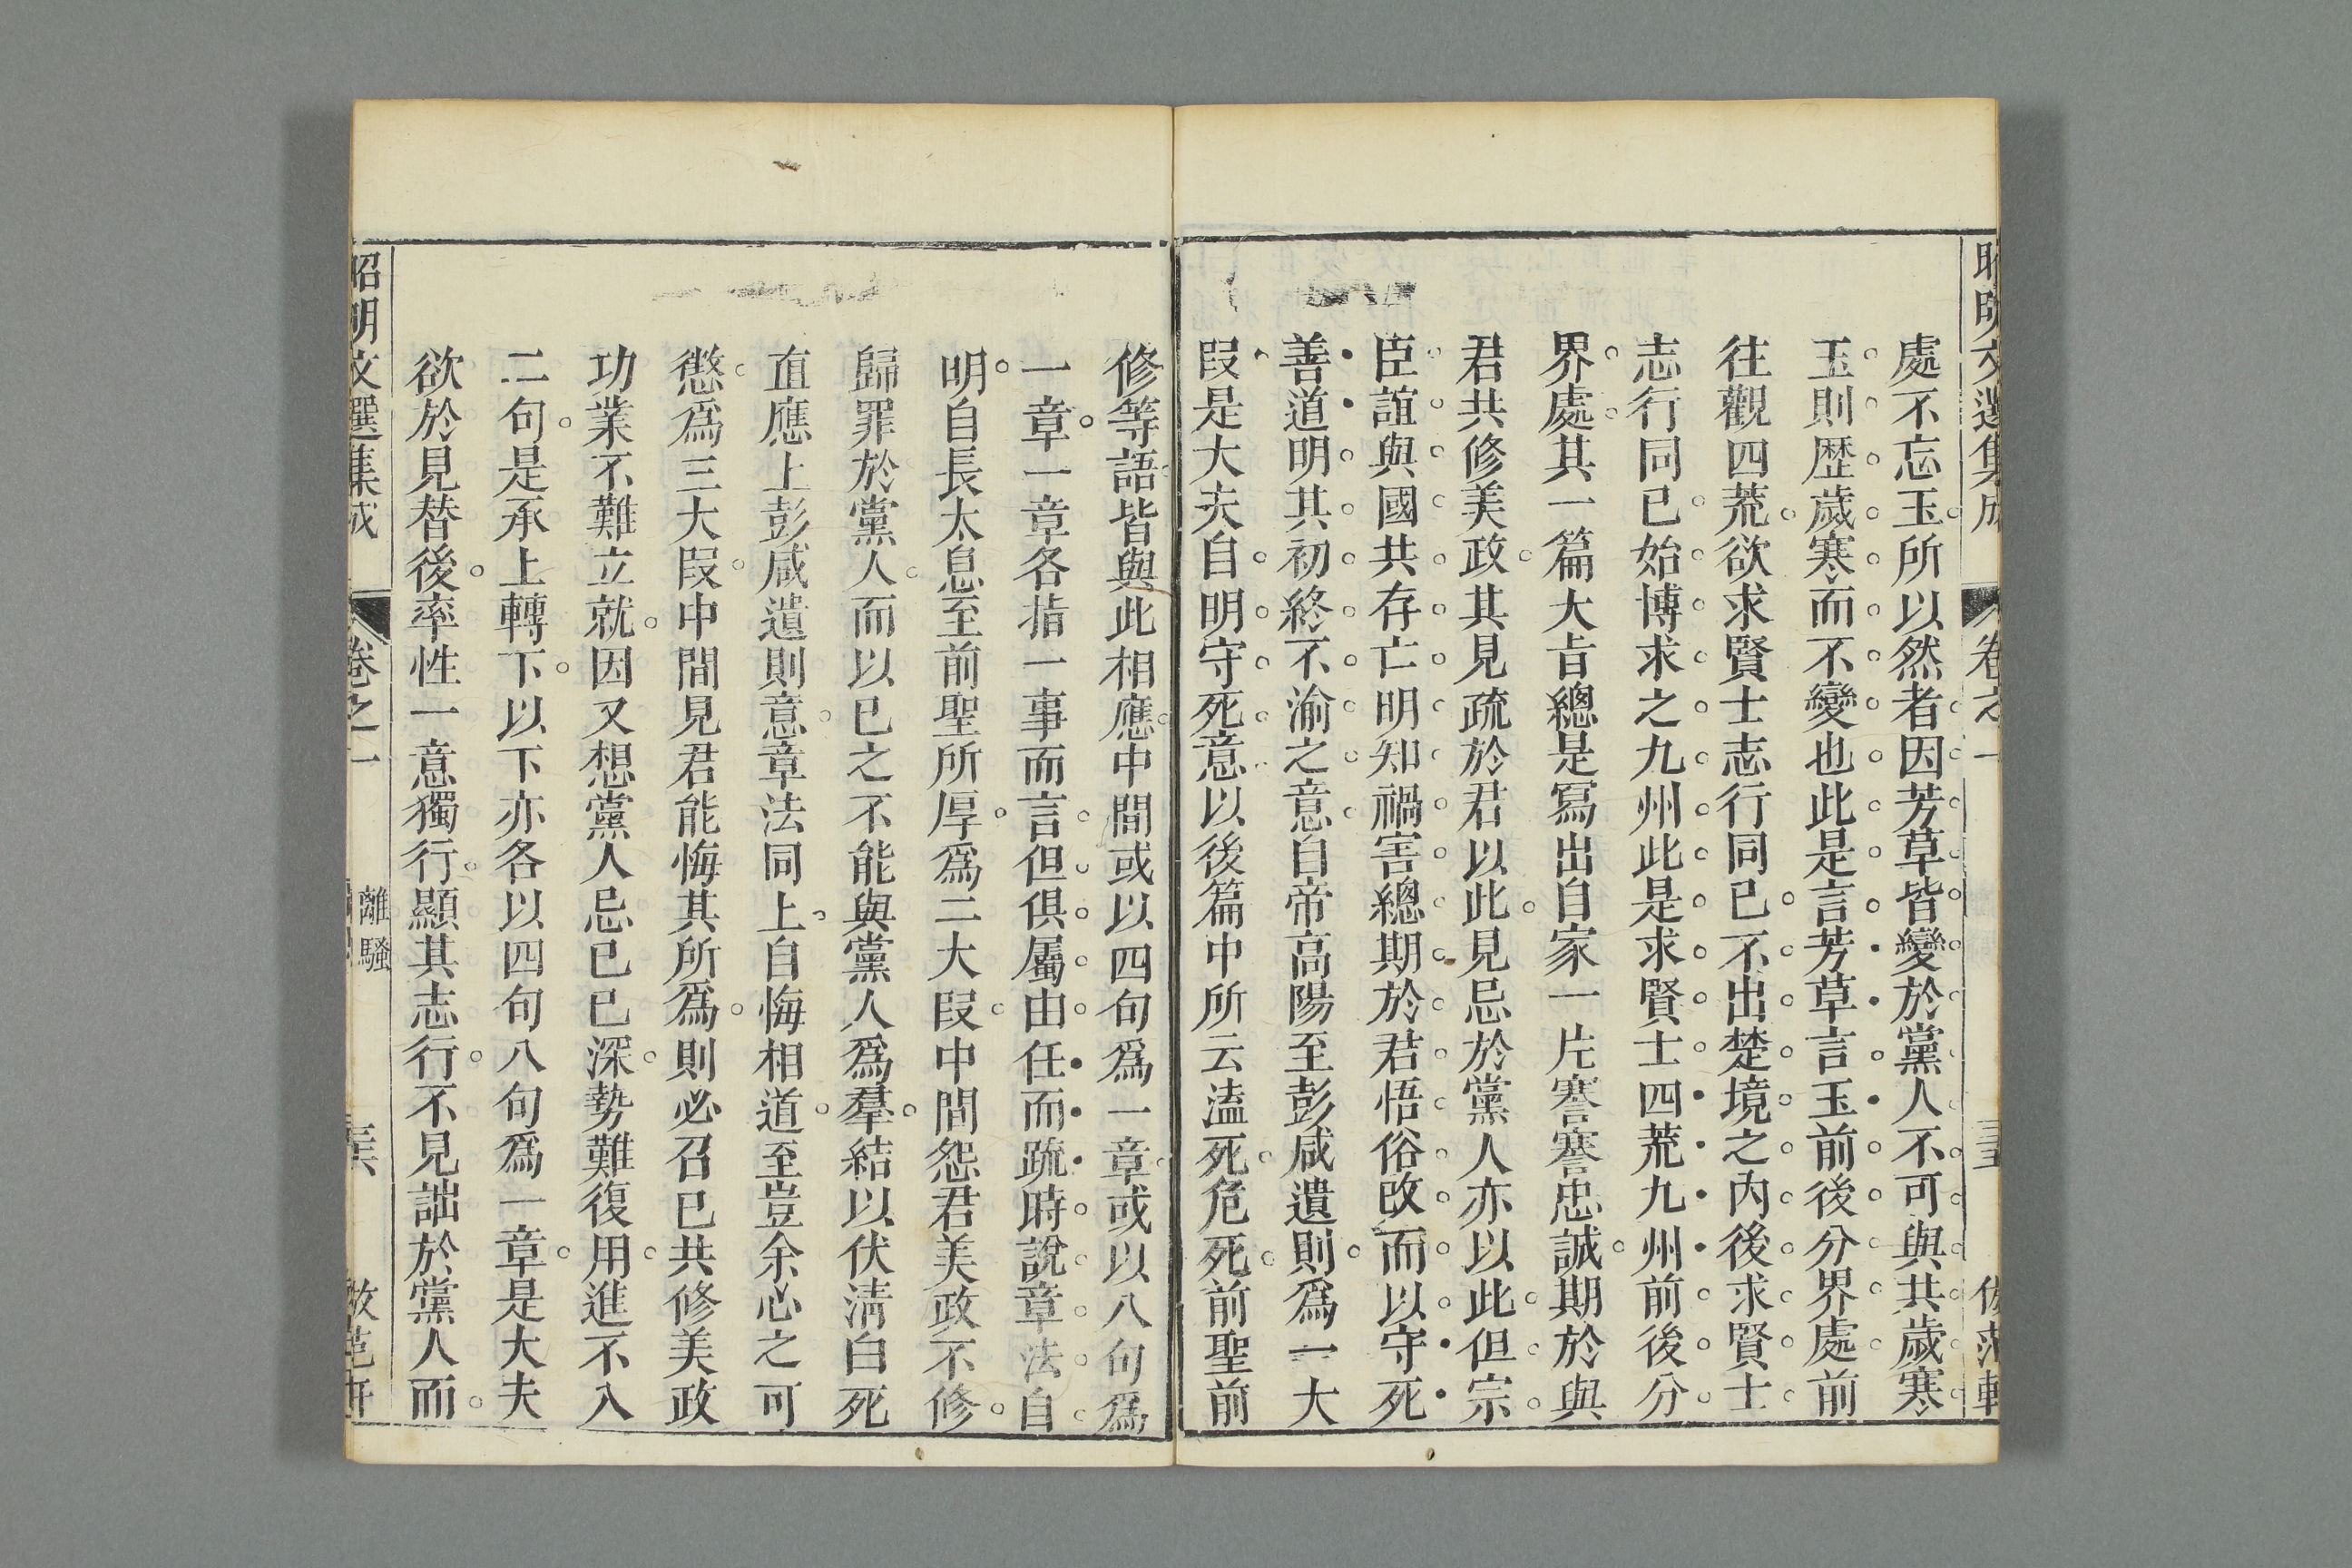 處不忘玉所以然者因芳草皆變於黨人不可與共歲寒
玉則歷歲寒而不變也此是言芳草言玉前後分界處前
往觀四荒欲求賢士志行同已不出楚境之內後求賢士
志行同已始博求之九州此是求賢士四荒九州前後分
界處其一篇大㫖總是寫出自家一片謇謇忠誠期於與
君共修美政其見疏於君以此見忌於黨人亦以此但宗
臣誼與國共存亡明知禍害總期於君悟俗改而以守死
善道明其初終不渝之意自帝高陽至彭咸遺則為一大
叚是大夫自明守死意以後篇中所云溘死危死前聖前
修等語皆與此相應中間或以四句爲一章或以八句爲
一章一章各指一事而言但俱屬由任而疏時說章法自
明自長太息至前聖所厚爲二大叚中間怨君美政不修
歸罪於黨人而以已之不能與黨人爲羣結以伏淸白死
直應上彭咸遺則意章法同上自悔相道至豈余心之可
懲爲三大叚中間見君能悔其所爲則必召已共修美政
功業不難立就因又想黨人忌已已深勢難復用進不入
二句是承上轉下以下亦各以四句八句爲一章是大夫
欲於見替後率性一意獨行顯其志行不見詘於黨人而
昭明文選集成
卷之一
離騷